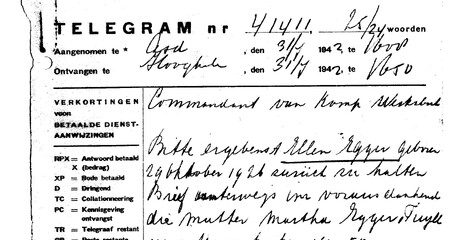 TELEGRAM nr 41411. 25/24 woorden
Aangenomen te * Asd , den 31/7 1942, te 1600
Ontvangen te , den 31/7 1942, te 1650
VERKORTINGEN
voor
BETAALDE DIENST-
AANWIJZINGEN
RPX = Antwoord betaald
X (bedrag)
XP = Bode betaald
D = Dringend
TC = Collationneering
PC = Kennisgeving
ontvangst
TR = Telegraaf restant
Commandant van Kamp
Bitte ergebenst Ellen Egger geboren
29 Oktober 1926 zurück zu halten
Brief unterwegs im voraus dankend
die Mutter Martha Egger